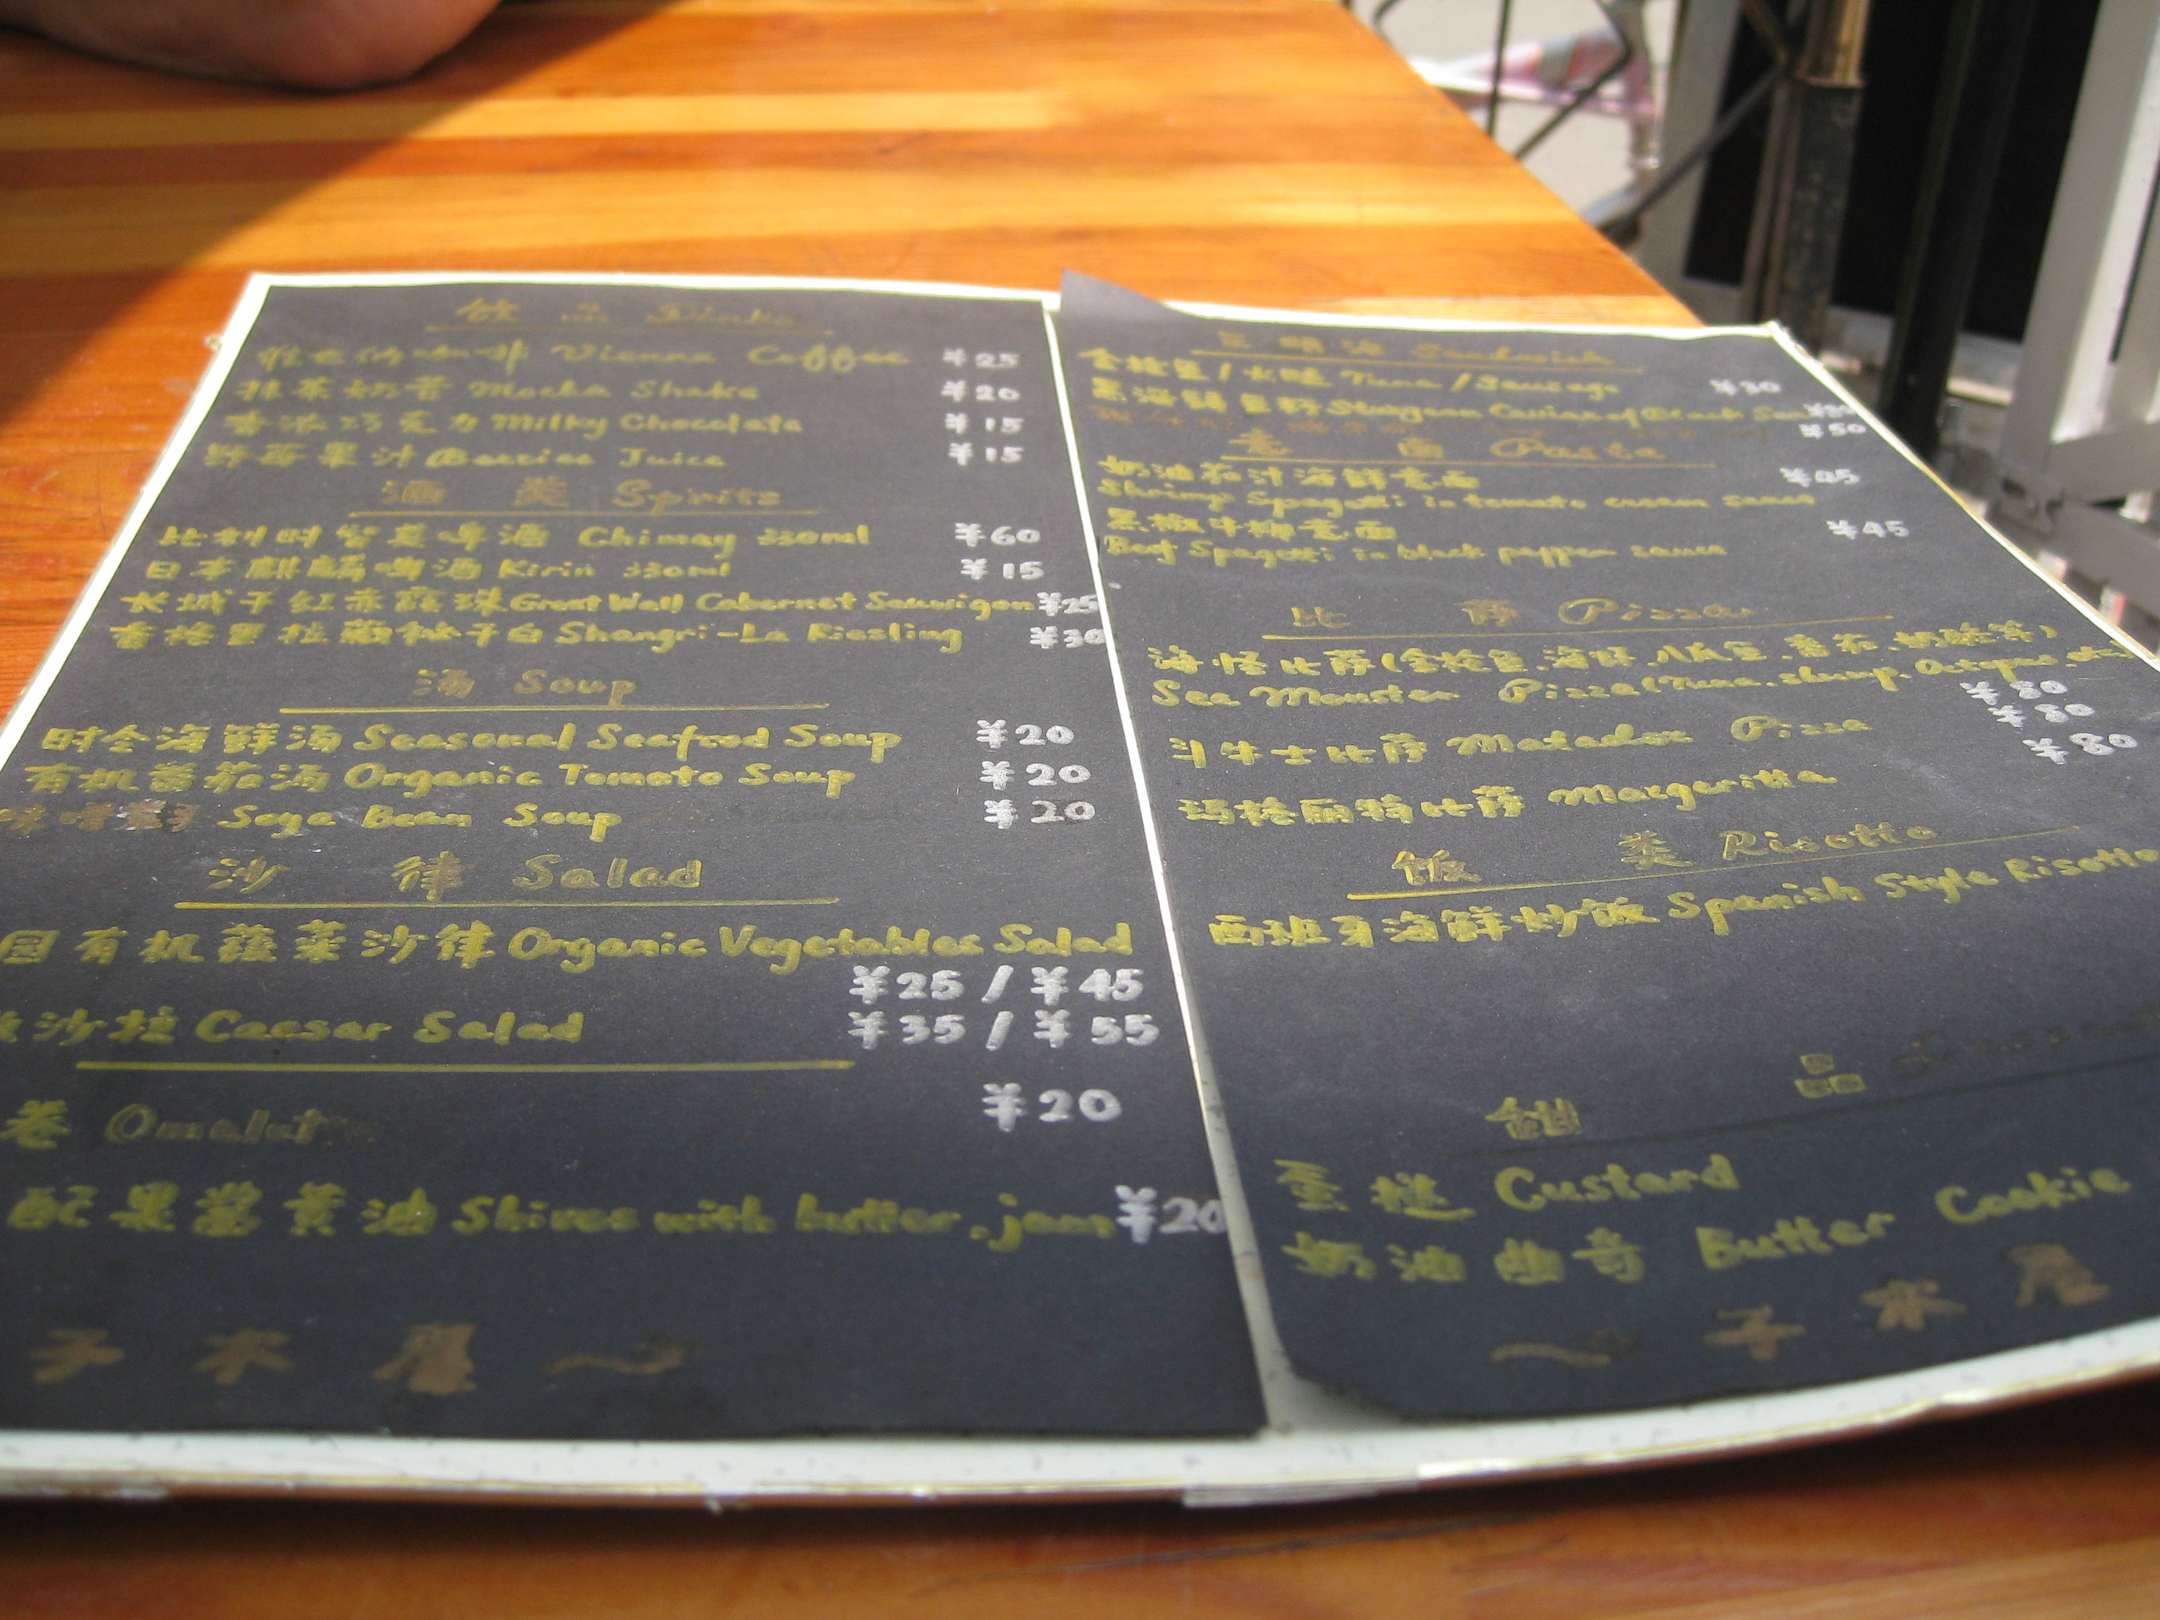 饮 品 Drinks
维也纳咖啡 Vienna Coffee ¥25
抹茶奶昔 Mocha Shake ¥20
香浓巧克力 Milky Chocolate ¥15
鲜莓果汁 Berries Juice ¥15
酒 类 Spirits
比利时智美啤酒 Chimay 330ml ¥60
日本麒麟啤酒 Kirin 330ml ¥15
长城干红赤霞珠 Great Wall Cabernet Sauvigon ¥25
香格里拉藏秘干白 Shangri-La Riesling ¥30
汤 Soup
时令海鲜汤 Seasonal Seafood Soup ¥20
有机蕃茄汤 Organic Tomato Soup ¥20
味噌 Soya Bean Soup ¥20
沙 律 Salad
园有机蔬菜沙律 Organic Vegetables Salad
¥25 / ¥45
沙拉 Caesar Salad ¥35 / ¥55
卷 Omalut ¥20
配果酱黄油 with butter, jam ¥20
子 木 屋
三 明 治 Sandwich
金枪鱼/火腿 Tuna / Sausage ¥30
黑海鲟鱼籽 Sturgeon Caviar of Black
¥50
意 面 Pasta
奶油茄汁海鲜意面 ¥45
Shrimp Spagetti in tomato cream sauce
黑椒牛柳意面 ¥45
Beef Spagetti in black pepper sauce
比 萨 Pizza
海怪比萨(金枪鱼、海虾、八爪鱼、蕃茄、奶酪等)
Sea Monster Pizza (Tuna, shrimp, Octopus, etc ¥80
斗牛士比萨 Matador Pizza ¥80
玛格丽特比萨 Margeritta ¥80
饭 类 Risotto
西班牙海鲜炒饭 Spanish Style Risotto
甜 品
蛋挞 Custard
奶油曲奇 Butter Cookie
子 木 屋